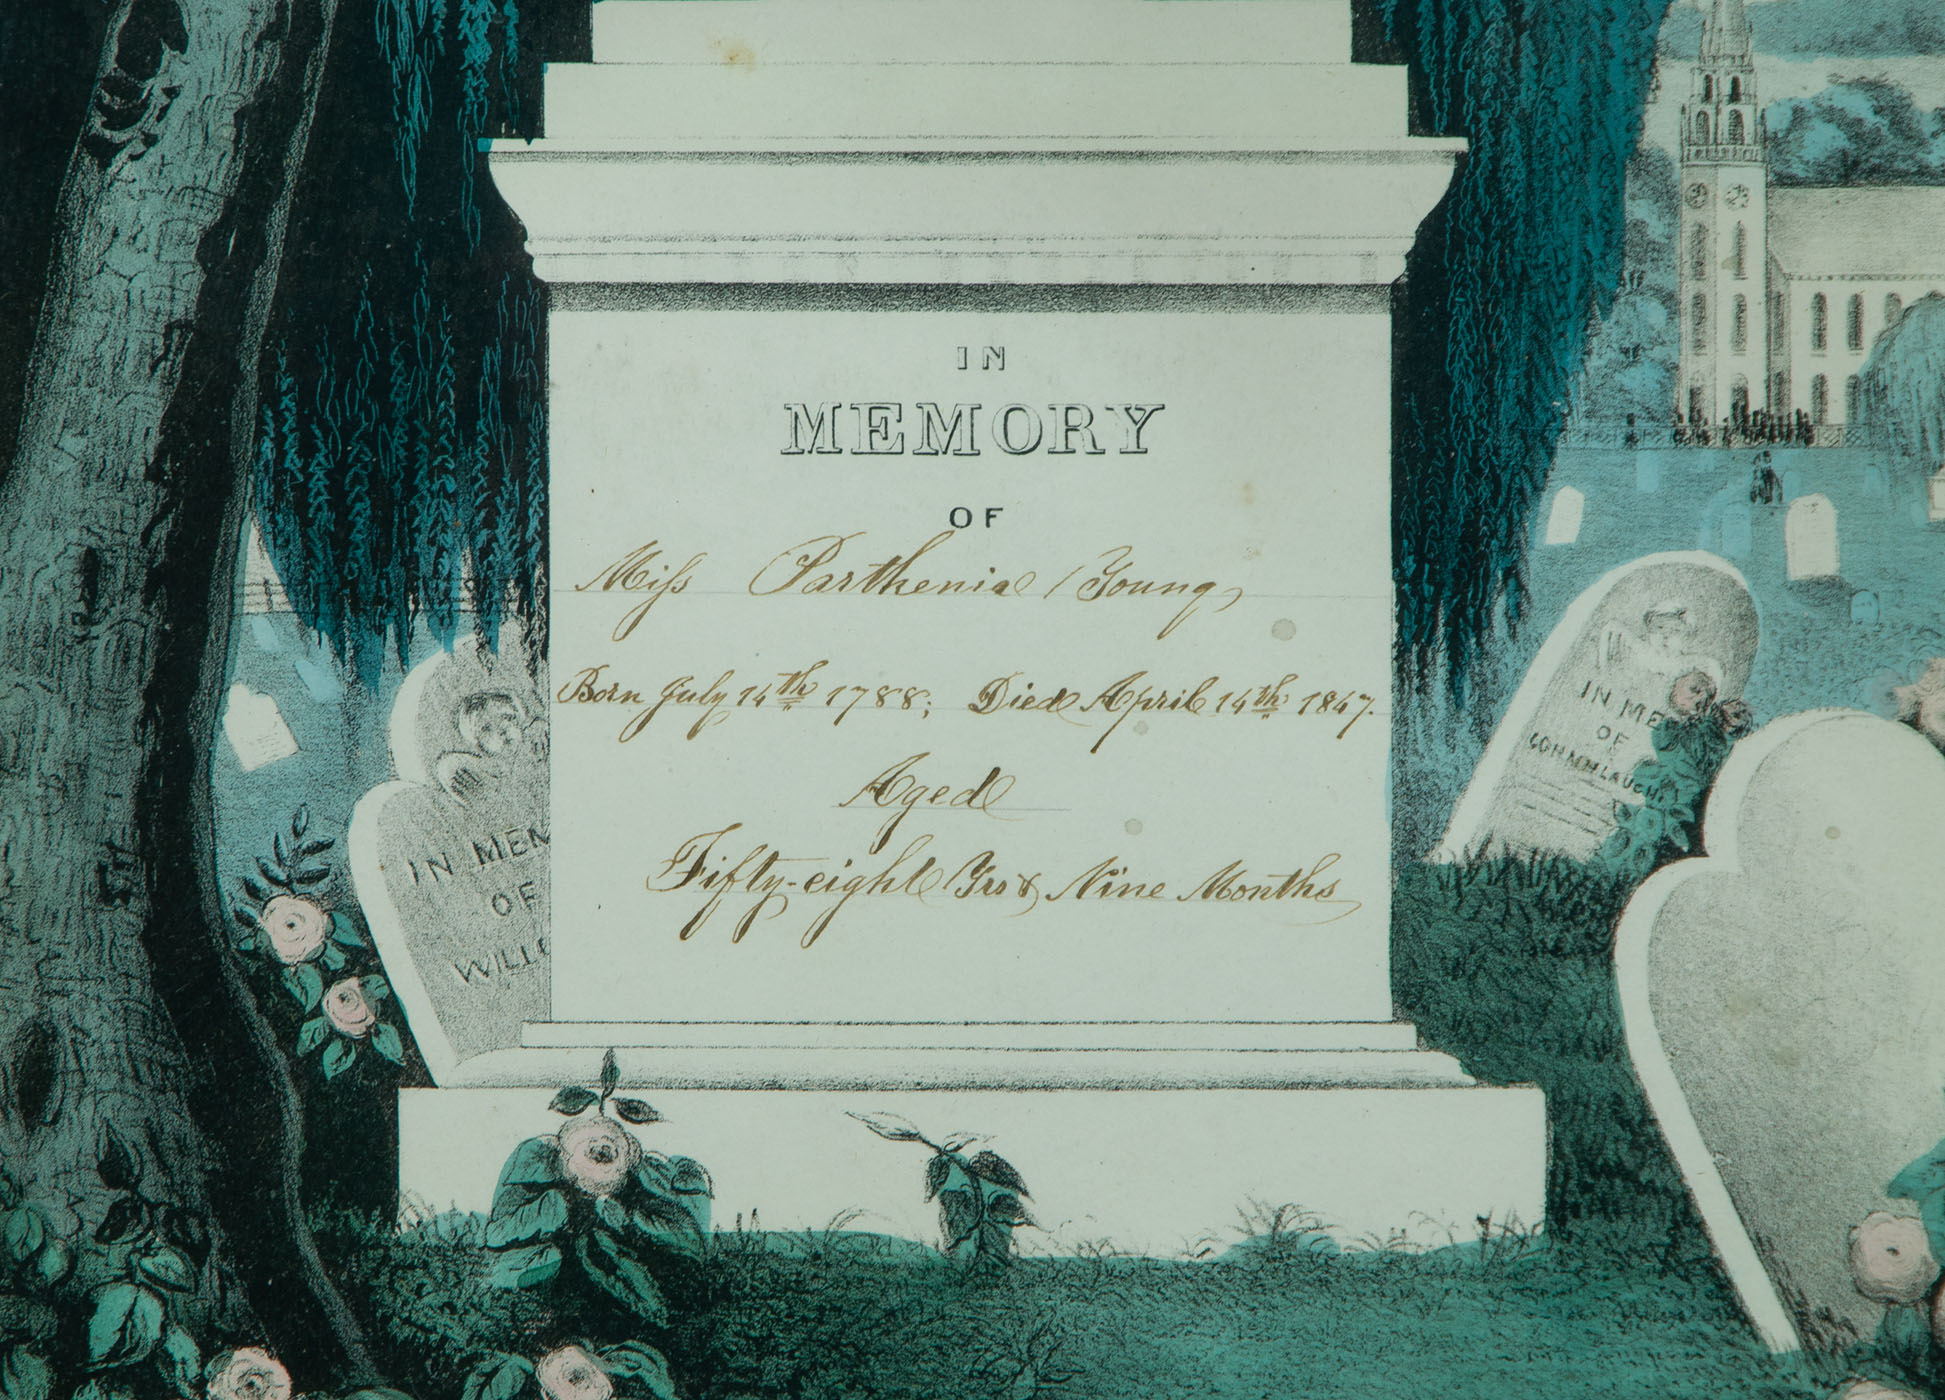 IN
MEMORY
OF
Miss Parthenia Young
Born July 14th 1788; Died April 14th 1847.
Aged
Fifty-eight Yrs & Nine Months
IN MEM
OF
IN ME
OF